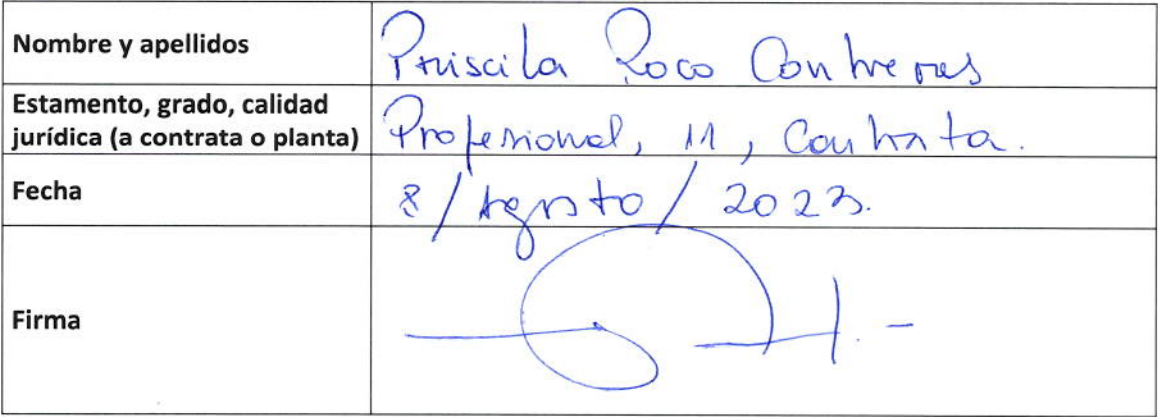 Nombre y apellidos
Priscila Roco Contreras
Estamento, grado, calidad
jurídica (a contrata o planta)
Profesional, 11, Contrata.
Fecha
8/Agosto/2023.
Firma